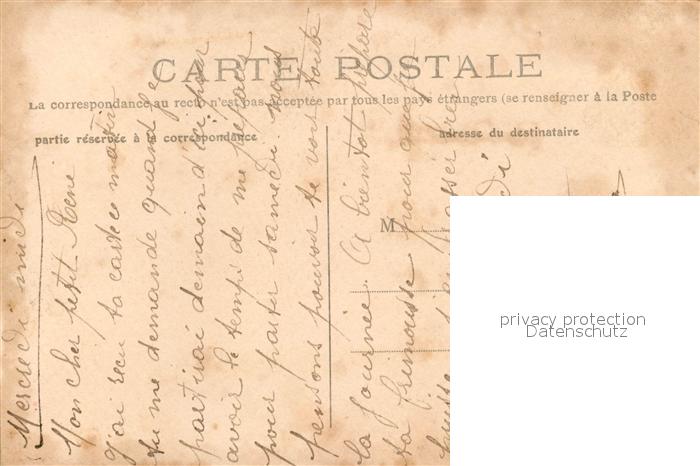 CARTE POSTALE
La correspondance au recto n'est pas acceptée par tous les pays étrangers (se renseigner à la Poste
partie réservée à la correspondance
adresse du destinataire
M
Mercredi midi
Mon cher petit René
J'ai reçu ta carte ce matin
tu me demande quand je
partirai demain
avoir le temps de me
pour partir samedi nous
pensons pouvoir te voir toute
la journée. A bientôt
ta frimousse pour que
puisse
privacy protection
Datenschutz